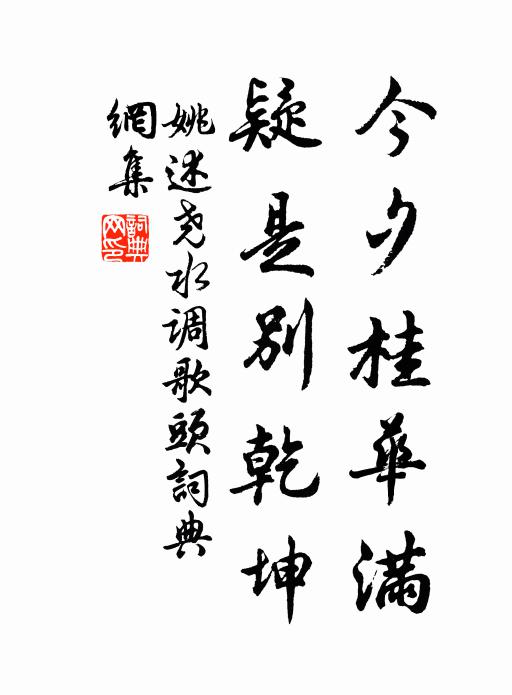 今夕桂華滿
疑是別乾坤
姚述尧水调歌頭詞典
網集
詞典網印